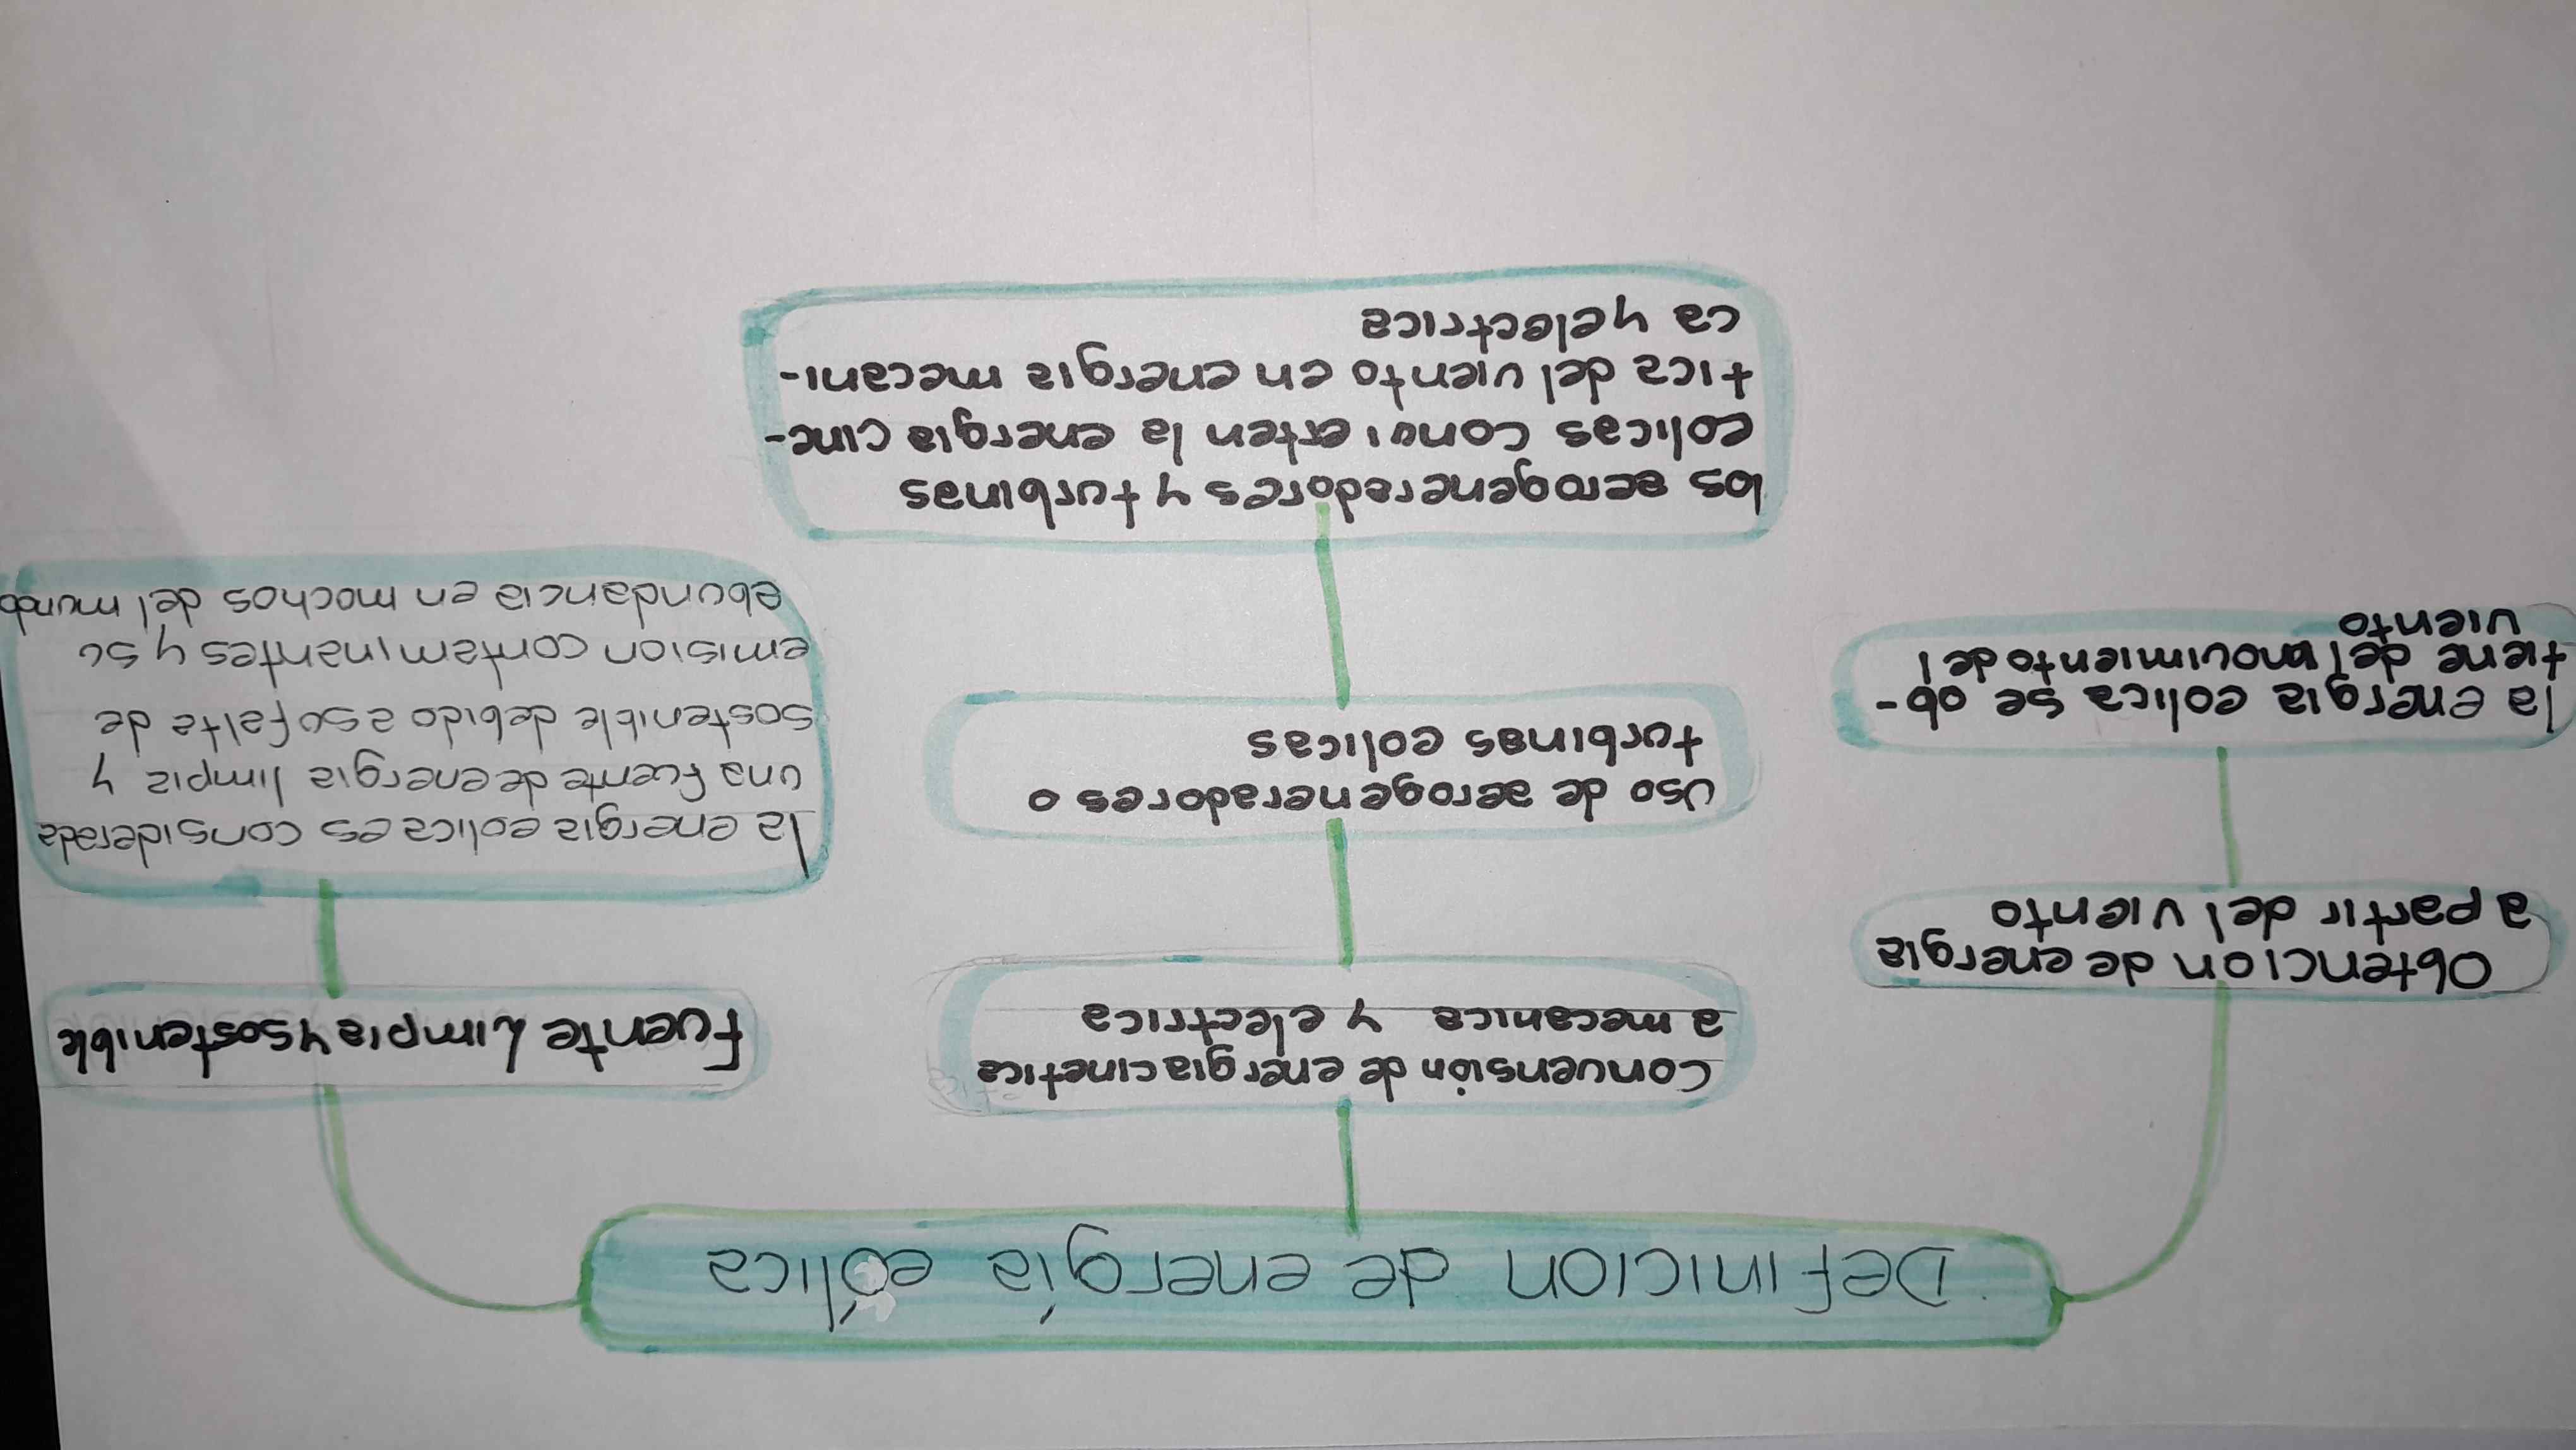 Definicion de energía eólica
Obtencion de energia
a partir del viento
la energia eolica se ob-
tiene del movimiento del
viento
Convensión de energia cinetica
a mecanica y electrica
Uso de aerogeneradores o
turbinas eolicas
los aerogeneradores y turbinas
eolicas convierten la energia cine-
tica del viento en energia mecani-
ca y electrica
Fuente Limpia y Sostenible
la energia eolica es considerada
una fuente de energia limpia y
sostenible debido a su falta de
emision contaminantes y su
abundancia en mochos del mundo